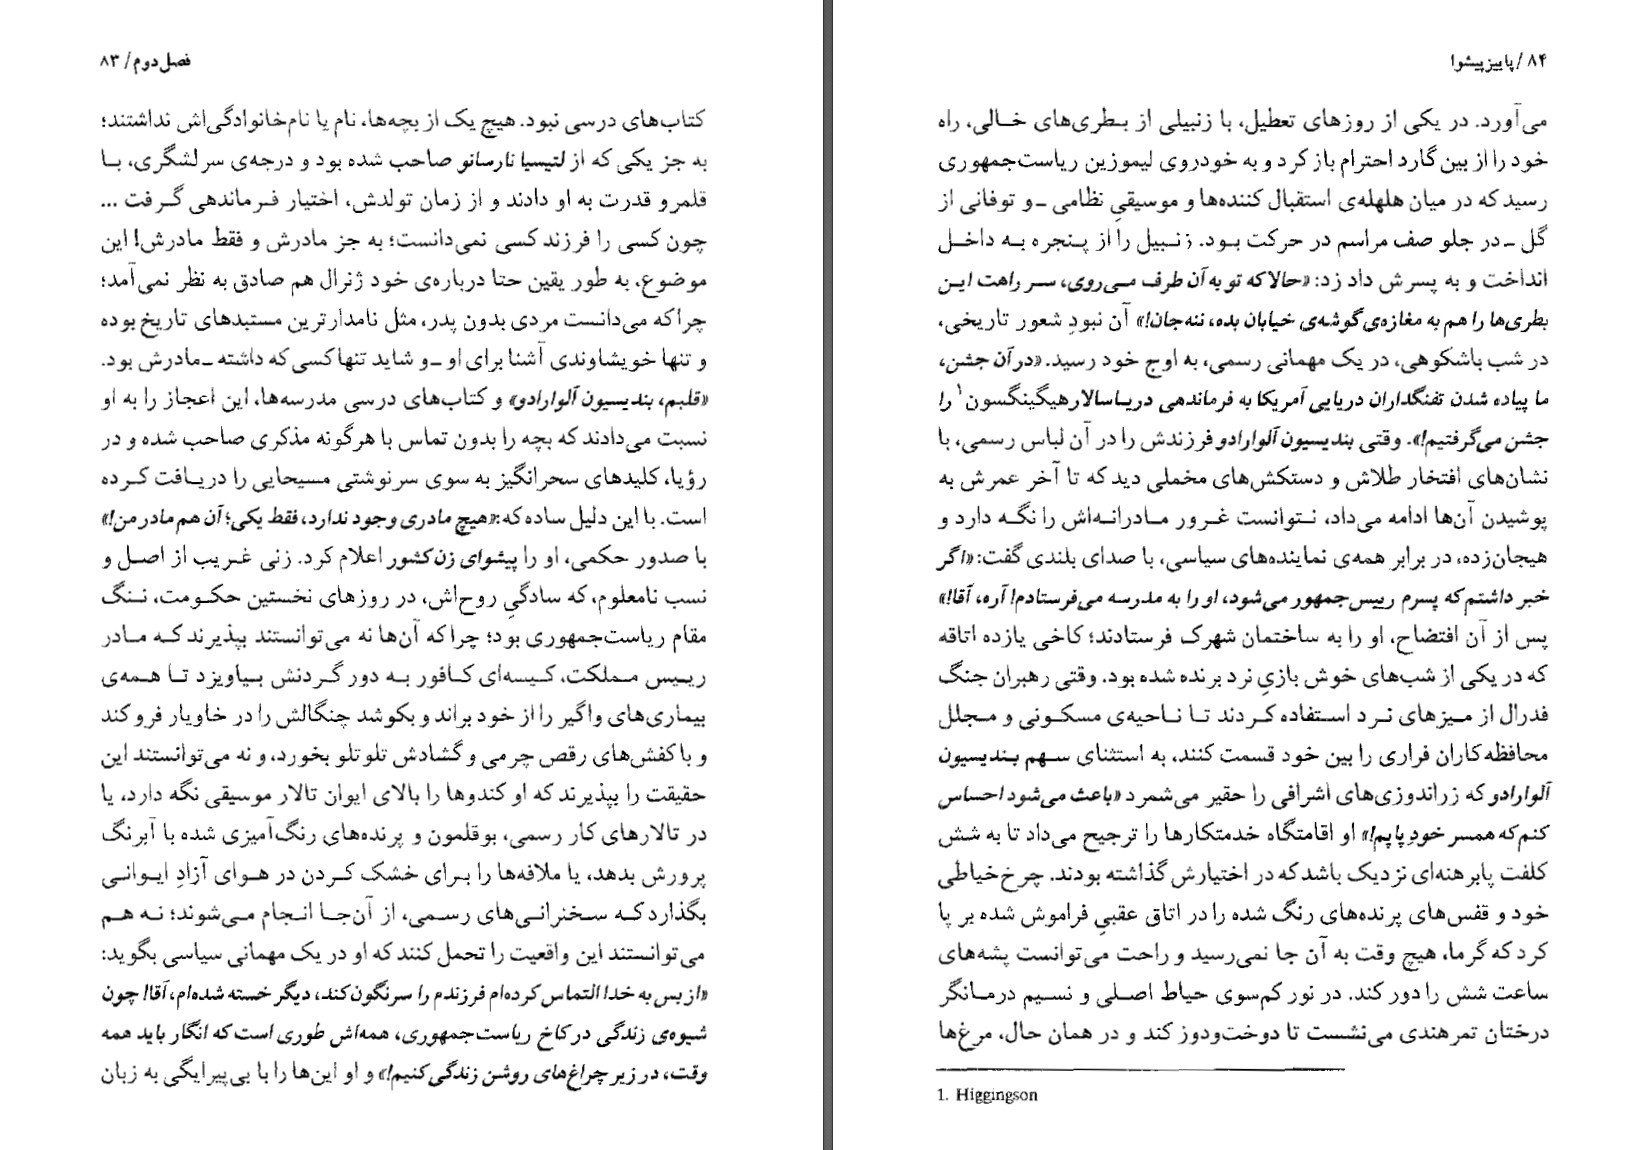 فصل دوم / ۸۳
کتاب‌های درسی نبود. هیچ یک از بچه‌ها، نام یا نام‌خانوادگی‌اش نداشتند؛
به جز یکی که از لتیسیا نارسانو صاحب شده بود و درجه‌ی سرلشگری، بـا
قلمرو قدرت به او دادند و از زمان تولدش، اختیار فـرماندهی گـرفت ...
چون کسی را فرزند کسی نمی‌دانست؛ به جز مادرش و فقط مادرش! این
موضوع، به طور یقین حتا درباره‌ی خود ژنرال هم صادق به نظر نمی‌آمد؛
چراکه می‌دانست مردی بدون پدر، مثل نامدارترین مستبدهای تاریخ بوده
و تنها خویشاوندی آشنا برای او ـ و شاید تنها کسی که داشته ـ مادرش بود.
«قلبم، بندیسیون آلوارادو» و کتاب‌های درسی مدرسه‌ها، این اعجاز را به او
نسبت می‌دادند که بچه را بدون تماس با هرگونه مذکری صاحب شده و در
رؤیا، کلیدهای سحرانگیز به سوی سرنوشتی مسیحایی را دریـافت کـرده
است. با این دلیل ساده که: «هیچ مادری وجود ندارد، فقط یکی؛ آن هم مادر من!»
با صدور حکمی، او را پیشوای زن کشور اعلام کرد. زنی غـریب از اصـل و
نسب نامعلوم، که سادگیِ روح‌اش، در روزهای نخستین حکـومت، نـنگ
مقام ریاست‌جمهوری بود؛ چراکه آن‌ها نه می‌توانستند بپذیرند کـه مـادر
ریـیس مـملکت، کـیسه‌ای کـافور بـه دور گـردنش بـیاویزد تـا هـمه‌ی
بیماری‌های واگیر را از خود براند و بکوشد چنگالش را در خاویار فرو کند
و با کفش‌های رقص چرمی و گشادش تلوتلو بخورد، و نه می‌توانستند این
حقیقت را بپذیرند که او کندوها را بالای ایوان تالار موسیقی نگه دارد، یا
در تالارهای کار رسمی، بوقلمون و پرنده‌های رنگ‌آمیزی شده با آبرنگ
پرورش بدهد، یا ملافه‌ها را بـرای خشک کـردن در هـوای آزادِ ایـوانـی
بگذارد کـه سـخنرانـی‌های رسمی، از آن‌جـا انـجام مـی‌شوند؛ نـه هـم
می‌توانستند این واقعیت را تحمل کنند که او در یک مهمانی سیاسی بگوید:
«از بس به خدا التماس کرده‌ام فرزندم را سرنگون کند، دیگر خسته شده‌ام، آقا! چون
شیوه‌ی زندگی در کاخ ریاست‌جمهوری، همه‌اش طوری است که انگار باید همه
وقت، در زیر چراغ‌های روشن زندگی کنیم!» و او این‌ها را با بی‌پیرایگی به زبان
۸۴ / پاییز پیشوا
می‌آورد. در یکی از روزهای تعطیل، با زنبیلی از بـطری‌های خـالی، راه
خود را از بین گارد احترام باز کرد و به خودروی لیموزین ریاست‌جمهوری
رسید که در میان هلهله‌ی استقبال کننده‌ها و موسیقیِ نظامی ـ و توفانی از
گل ـ در جلو صف مراسم در حرکت بـود. زنـبیل را از پـنجره بـه داخـل
انداخت و به پسرش داد زد: «حالا که تو به آن طرف مـی‌روی، سـر راهت ایـن
بطری‌ها را هم به مغازه‌ی گوشه‌ی خیابان بده، ننه جان!» آن نبودِ شعور تاریخی،
در شب باشکوهی، در یک مهمانی رسمی، به اوج خود رسید. «در آن جشن،
ما پیاده شدن تفنگداران دریایی آمریکا به فرماندهی دریاسالار هیگینگسون۱ را
جشن می‌گرفتیم!». وقتی بندیسیون آلوارادو فرزندش را در آن لباس رسمی، با
نشان‌های افتخار طلاش و دستکش‌های مخملی دید که تا آخر عمرش به
پوشیدن آن‌ها ادامه می‌داد، نـتوانست غـرور مـادرانـه‌اش را نگـه دارد و
هیجان‌زده، در برابر همه‌ی نماینده‌های سیاسی، با صدای بلندی گفت: «اگر
خبر داشتم که پسرم رییس‌جمهور می‌شود، او را به مدرسه می‌فرستادم! آره، آقا!»
پس از آن افتضاح، او را به ساختمان شهرک فرستادند؛ کاخی یازده اتاقه
که در یکی از شب‌های خوش بازیِ نرد برنده شده بود. وقتی رهبران جنگ
فدرال از میزهای نـرد استـفاده کـردند تـا نـاحیه‌ی مسکـونی و مـجلل
محافظه‌کاران فراری را بین خود قسمت کنند، به استثنای سـهم بـندیسیون
آلوارادو که زراندوزی‌های اشرافی را حقیر می‌شمرد «باعث می‌شود احساس
کنم که همسر خودِ پاپم!» او اقامتگاه خدمتکارها را ترجیح می‌داد تا به شش
کلفت پابرهنه‌ای نزدیک باشد که در اختیارش گذاشته بودند. چرخ خیاطی
خود و قفس‌های پرنده‌های رنگ شده را در اتاق عقبیِ فراموش شده بر پا
کرد که گرما، هیچ وقت به آن جا نمی‌رسید و راحت می‌توانست پشه‌های
ساعت شش را دور کند. در نور کم‌سوی حیاط اصلی و نسیم درمـانگر
درختان تمرهندی می‌نشست تا دوخت‌ودوز کند و در همان حال، مرغ‌ها
1. Higgingson